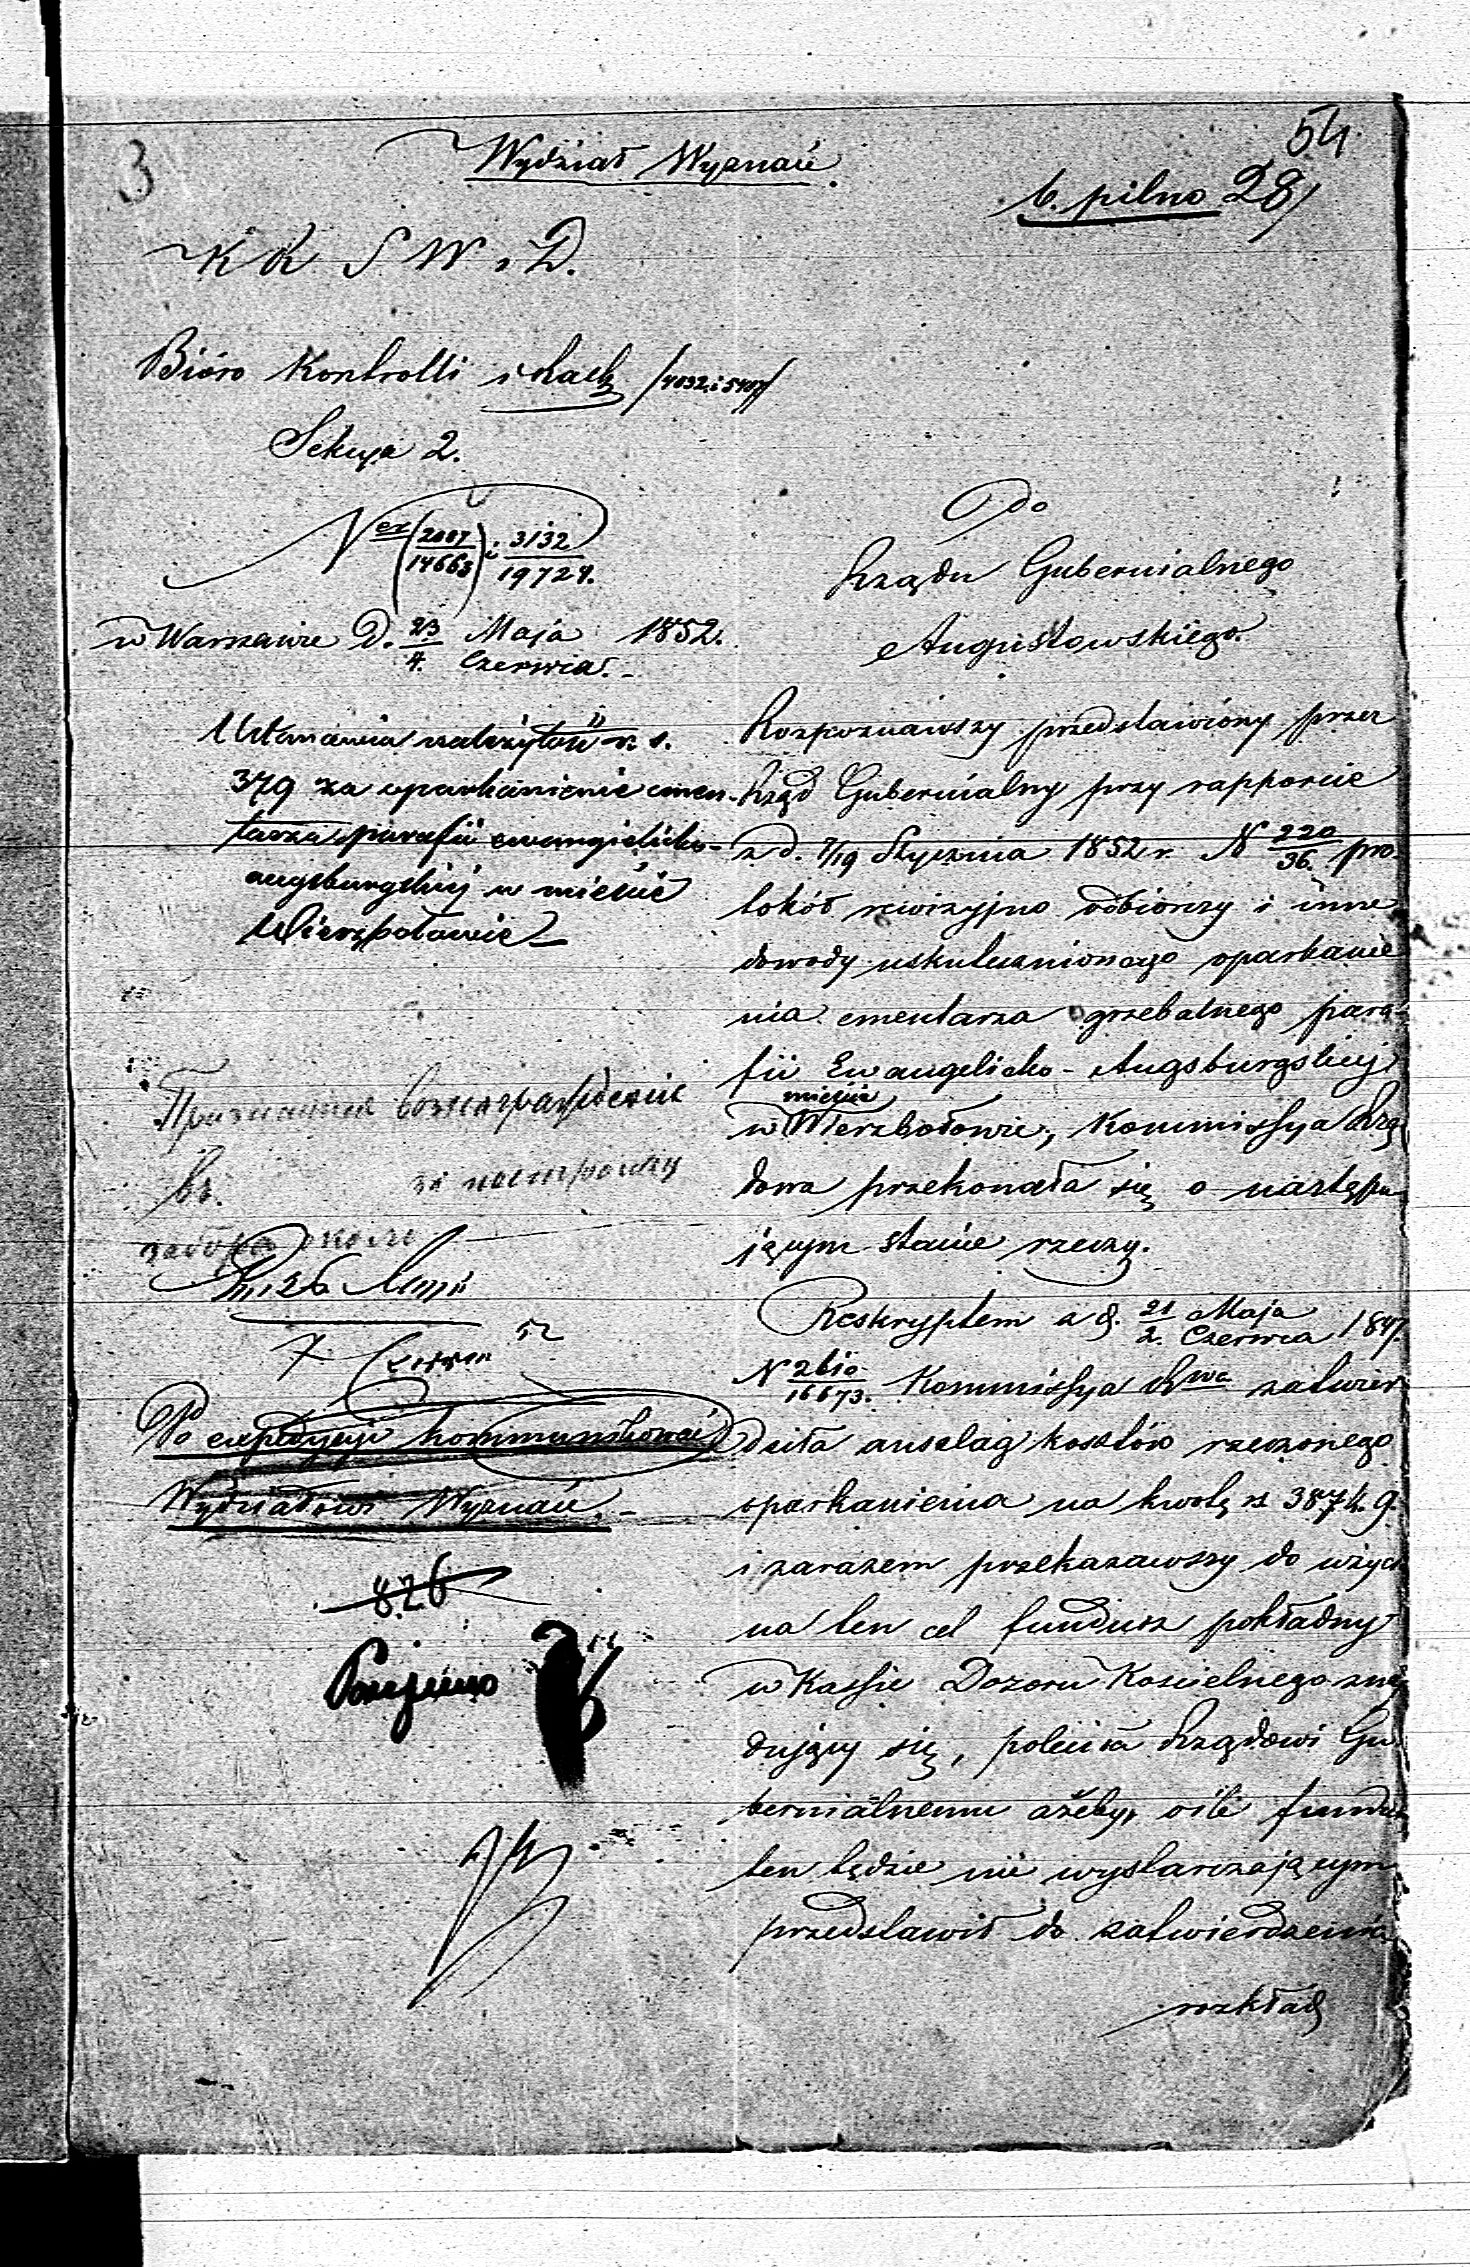 3
54
Wydział Wyznań.
b. pilno 28/
K R S W i D.
Bióro Kontrolli i Rach /4032 i 5407/
Sekcya 2.
N ex (2007/14663) i 3132/19724.
w Warszawie D. 23/4. Maja/Czerwca 1852.
Uznania należytości r. s.
379 za oparkanienie cmen-
tarza parafii ewangelicko-
augsburgskiej w mieście
Wierzbołowie
за постройку
Czerwca 52
Po expedycyi kommunikować
Wydziałowi Wyznań.
826
Przyjęto
Do
Rządu Gubernialnego
Augustowskiego.
Rozpoznawszy przedstawiony przez
Rząd Gubernialny przy rapporcie
z d. 7/19 Stycznia 1852 r. N 220/36. pro-
tokół rewizyjno odbiorczy i inne
dowody uskutecznionego oparkanie
nia cmentarza grzebalnego para-
fii Ewangelicko-Augsburgskiej
w mieście Wierzbołowie, Kommissya Rzą
dowa przekonała się o następu
jącym stanie rzeczy.
Reskryptem z d. 21/2. Maja/Czerwca 1847.
N 2610/16673. Kommissya Rwa zatwier
dziła anszlag kosztów rzeczonego
oparkanienia na kwotę rs 387 k. 9.
i zarazem przekazawszy do użycia
na ten cel fundusz pokładny
w Kassie Dozoru Kościelnego znaj
dujący się, poleciła Rządowi Gu
bernialnemu ażeby, oile fundusz
ten będzie nie wystarczającym
przedstawił do zatwierdzenia
rozkład